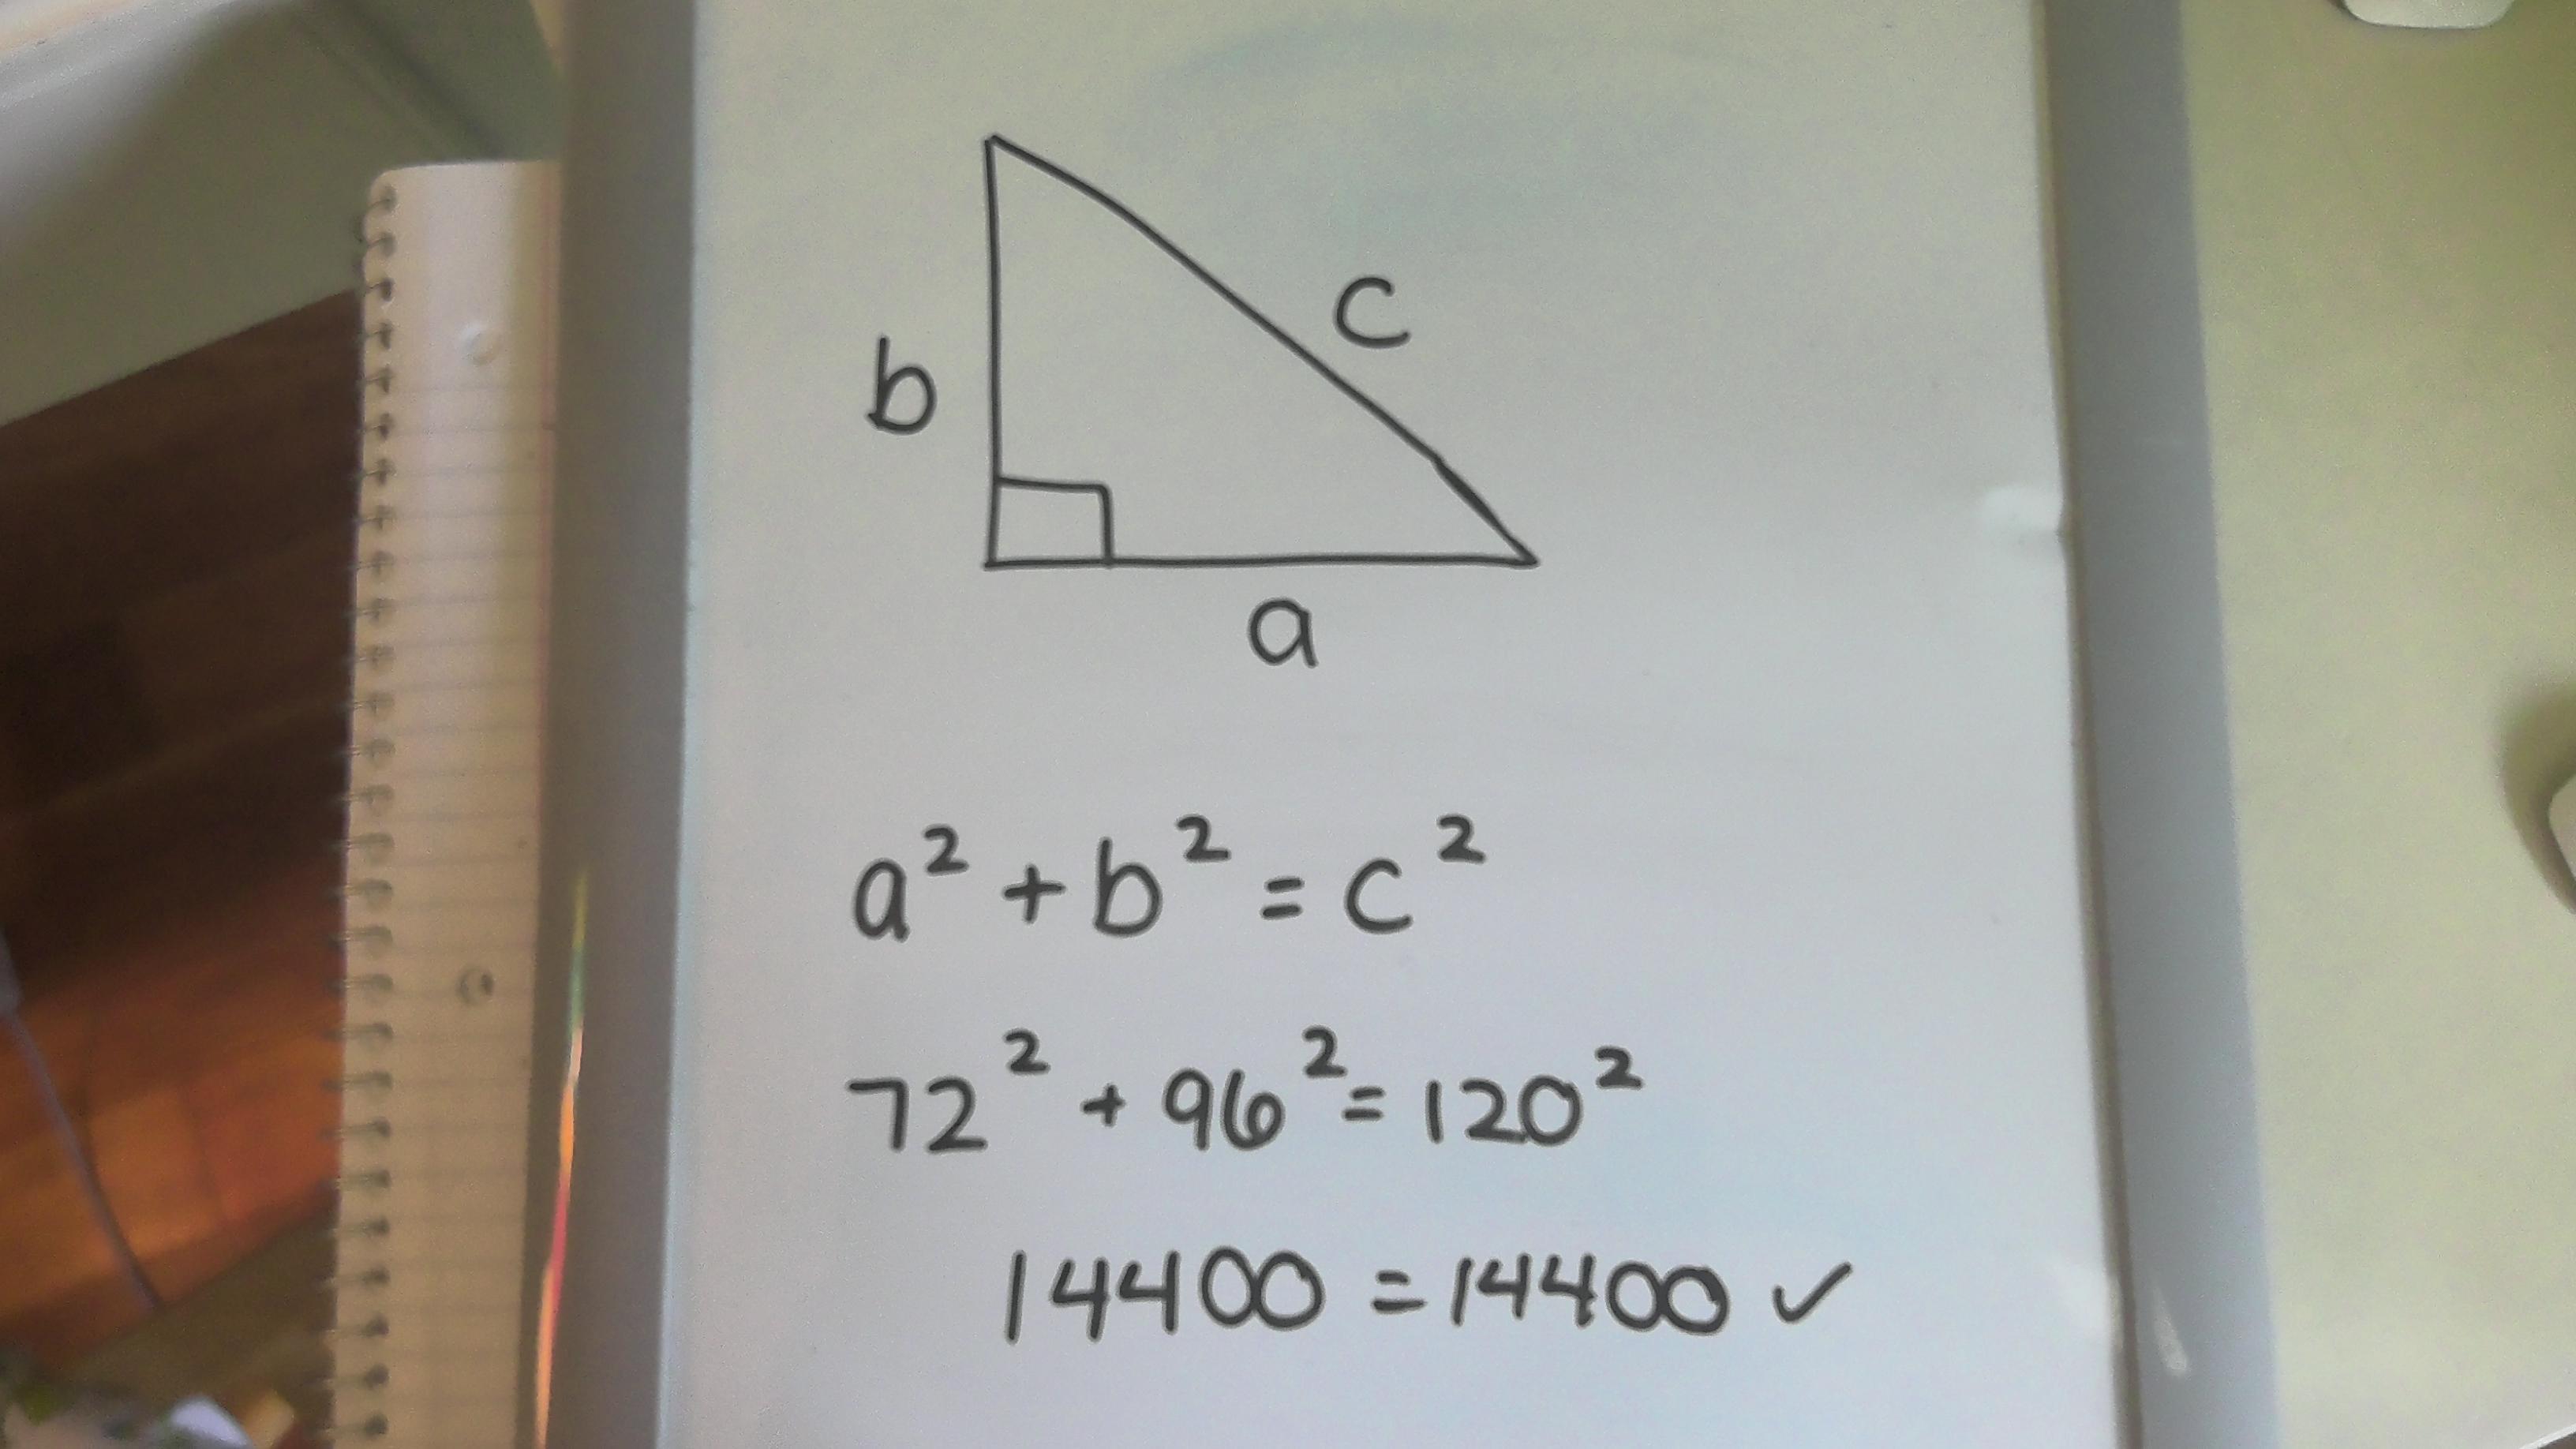 b
c
a
a² + b² = c²
72² + 96² = 120²
14400 = 14400 ✓